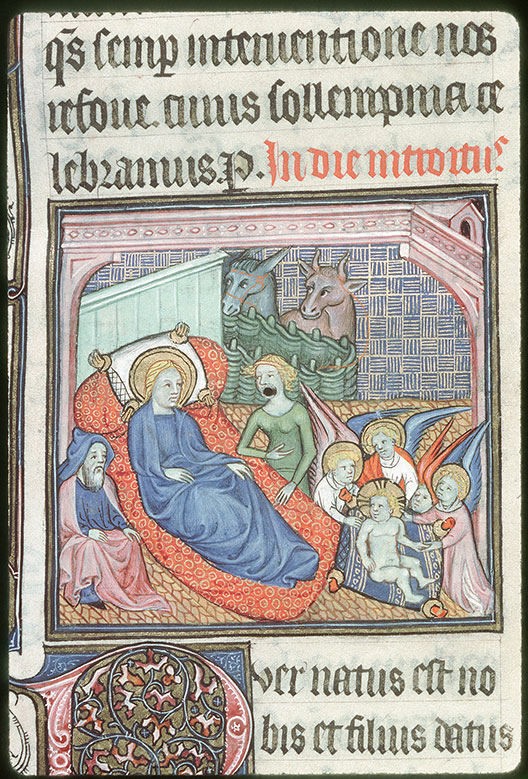 q̄s semp interuentione nos
refoue. cuius sollempnia ce
lebramus. P. In die introitus
Puer natus est no
bis et filius datus